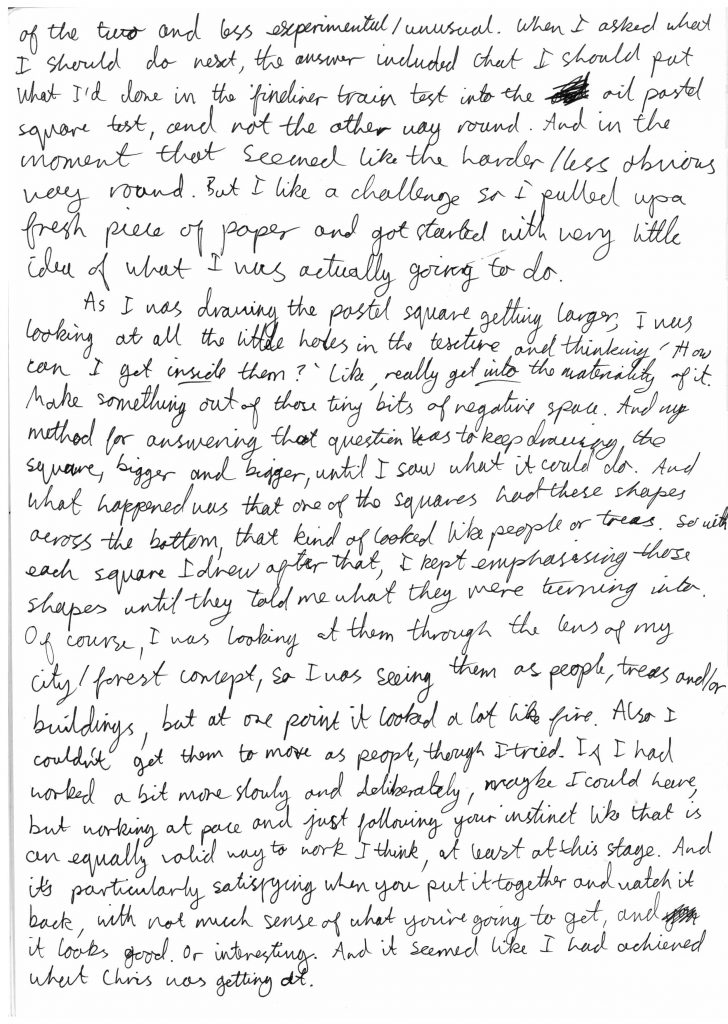 of the two and less experimental/unusual. When I asked what
I should do next, the answer included that I should put
what I'd done in the fineliner train test into the oil pastel
square test, and not the other way round. And in the
moment that seemed like the harder/less obvious
way round. But I like a challenge so I pulled up a
fresh piece of paper and got started with very little
idea of what I was actually going to do.
As I was drawing the pastel square getting larger, I was
looking at all the little holes in the texture and thinking 'How
can I get inside them?' Like, really get into the materiality of it.
Make something out of those tiny bits of negative space. And my
method for answering that question was to keep drawing the
square, bigger and bigger, until I saw what it could do. And
what happened was that one of the squares had these shapes
across the bottom, that kind of looked like people or trees. So with
each square I drew after that, I kept emphasising those
shapes until they told me what they were turning into.
Of course, I was looking at them through the lens of my
city/forest concept, so I was seeing them as people, trees and/or
buildings, but at one point it looked a lot like fire. Also I
couldn't get them to move as people, though I tried. If I had
worked a bit more slowly and deliberately, maybe I could have,
but working at pace and just following your instinct like that is
an equally valid way to work I think, at least at this stage. And
it's particularly satisfying when you put it together and watch it
back, with not much sense of what you're going to get, and
it looks good. Or interesting. And it seemed like I had achieved
what Chris was getting at.